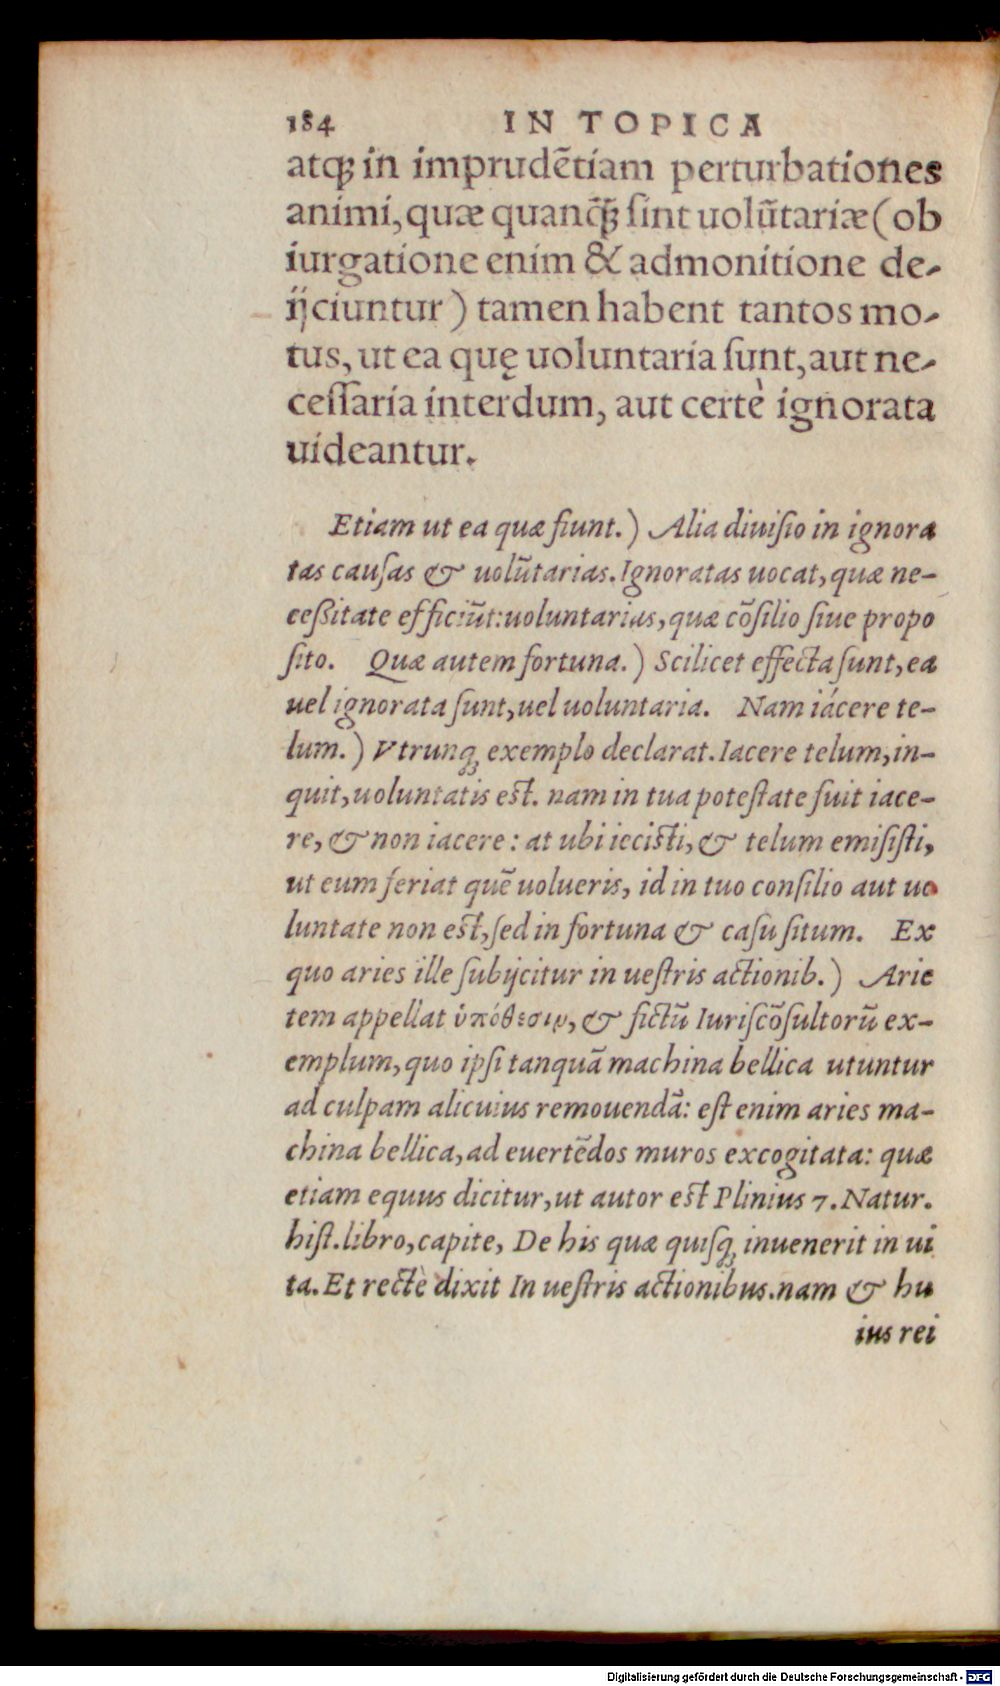 184 IN TOPICA
atq́; in imprudẽtiam perturbationes
animi, quæ quanq̃; sint uolũtariæ (ob
iurgatione enim & admonitione de-
ijciuntur) tamen habent tantos mo-
tus, ut ea quę uoluntaria sunt, aut ne-
cessaria interdum, aut certè ignorata
uideantur.
Etiam ut ea quæ fiunt.) Alia diuisio in ignora
tas causas & uolũtarias. Ignoratas uocat, quæ ne-
ceßitate efficiũt: uoluntarias, quæ cõsilio siue propo
sito. Quæ autem fortuna.) Scilicet effecta sunt, ea
uel ignorata sunt, uel uoluntaria. Nam iácere te-
lum.) Vtrunq; exemplo declarat. Iacere telum, in-
quit, uoluntatis est. nam in tua potestate fuit iace-
re, & non iacere: at ubi iecisti, & telum emisisti,
ut eum feriat quẽ uolueris, id in tuo consilio aut uo
luntate non est, sed in fortuna & casu situm. Ex
quo aries ille subijcitur in uestris actionib.) Arie
tem appellat ὑπόθεσιν, & fictũ Iuriscõsultorũ ex-
emplum, quo ipsi tanquã machina bellica utuntur
ad culpam alicuius remouendã: est enim aries ma-
china bellica, ad euertẽdos muros excogitata: quæ
etiam equus dicitur, ut autor est Plinius 7. Natur.
hist. libro, capite, De his quæ quisq; inuenerit in ui
ta. Et rectè dixit In uestris actionibus. nam & hu
ius rei
Digitalisierung gefördert durch die Deutsche Forschungsgemeinschaft - DFG